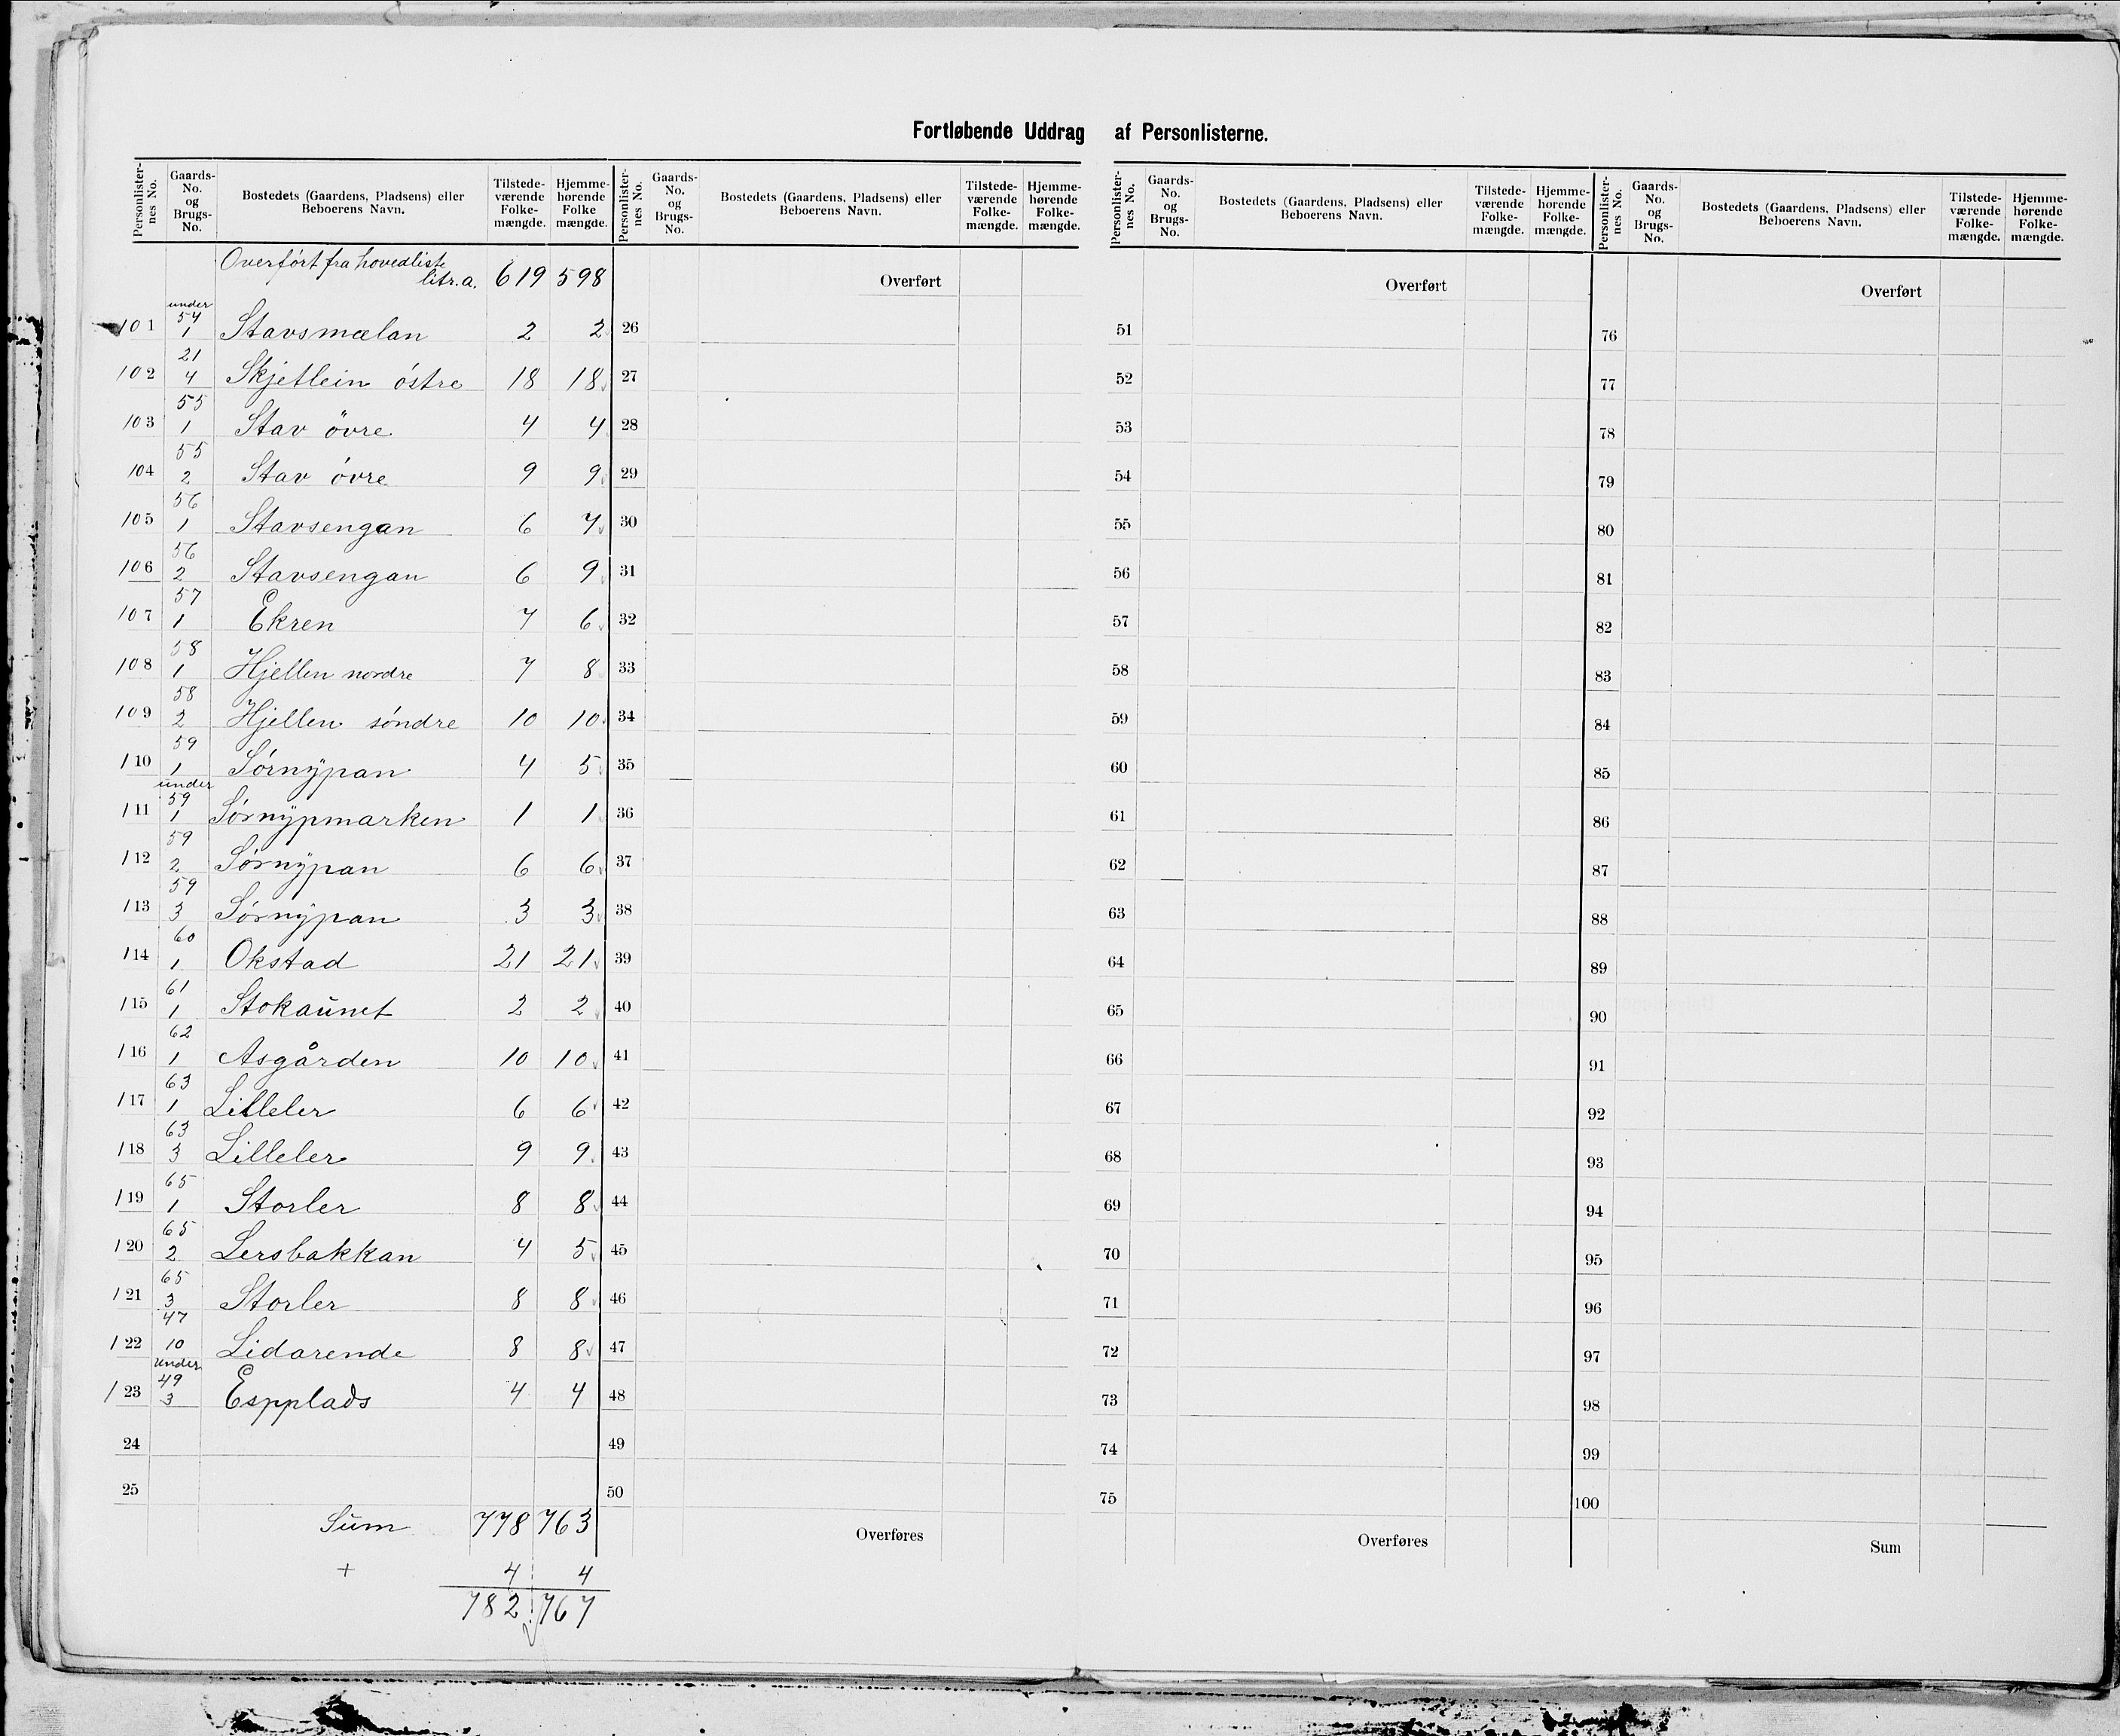 Fortløbende Uddrag af Personlisterne.
Personlisternes No. Gaards-No. og Brugs-No. Bostedets (Gaardens, Pladsens) eller Beboerens Navn. Tilstedeværende Folkemængde. Hjemmehørende Folkemængde.
Overført fra hovedliste
litr. a. 619 598
101 under 54 1 Stavsmælan 2 2
102 21 4 Skjetlein østre 18 18
103 55 1 Stav øvre 4 4
104 55 2 Stav øvre 9 9
105 56 1 Stavsengan 6 7
106 56 2 Stavsengan 6 9
107 57 1 Ekren 7 6
108 58 1 Hjellen nordre 7 8
109 58 2 Hjellen søndre 10 10
110 59 1 Sørnypan 4 5
111 under 59 1 Sørnypmarken 1 1
112 59 2 Sørnypan 6 6
113 59 3 Sørnypan 3 3
114 60 1 Okstad 21 21
115 61 1 Stokaunet 2 2
116 62 1 Asgården 10 10
117 63 1 Lilleler 6 6
118 63 3 Lilleler 9 9
119 65 1 Storler 8 8
120 65 2 Lersbakkan 4 5
121 65 3 Storler 8 8
122 47 10 Lidarende 8 8
123 under 49 3 Espplads 4 4
24
25
Sum 778 763
+ 4 4
782 767
Personlisternes No. Gaards-No. og Brugs-No. Bostedets (Gaardens, Pladsens) eller Beboerens Navn. Tilstedeværende Folkemængde. Hjemmehørende Folkemængde.
Overført
26
27
28
29
30
31
32
33
34
35
36
37
38
39
40
41
42
43
44
45
46
47
48
49
50
Overføres
Personlisternes No. Gaards-No. og Brugs-No. Bostedets (Gaardens, Pladsens) eller Beboerens Navn. Tilstedeværende Folkemængde. Hjemmehørende Folkemængde.
Overført
51
52
53
54
55
56
57
58
59
60
61
62
63
64
65
66
67
68
69
70
71
72
73
74
75
Overføres
Personlisternes No. Gaards-No. og Brugs-No. Bostedets (Gaardens, Pladsens) eller Beboerens Navn. Tilstedeværende Folkemængde. Hjemmehørende Folkemængde.
Overført
76
77
78
79
80
81
82
83
84
85
86
87
88
89
90
91
92
93
94
95
96
97
98
99
100
Sum